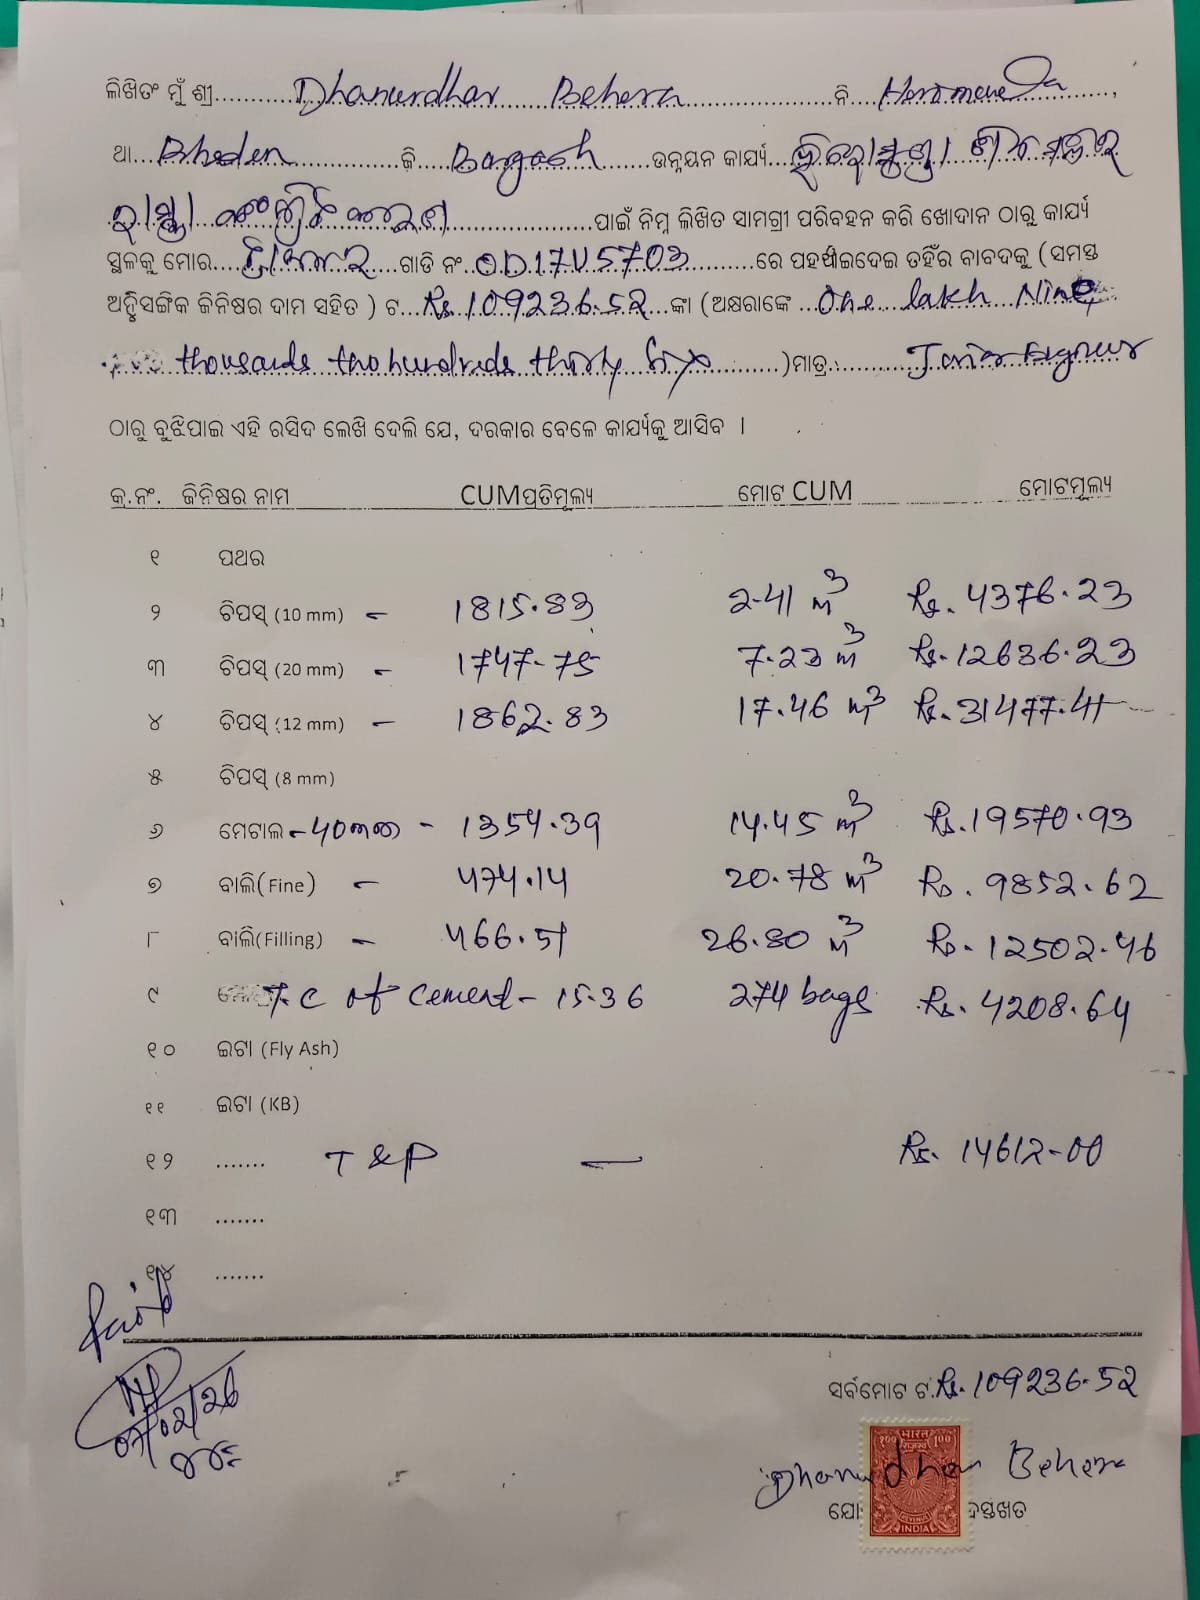 ଲିଖିତଂ ମୁଁ ଶ୍ରୀ.......... Dhanurdhar Behera ................ନି..
ଥା... Bheden ............ଜି... Bargarh ......ଉନ୍ନୟନ କାର୍ଯ୍ୟ...
ରାସ୍ତା ..................ପାଇଁ ନିମ୍ନ ଲିଖିତ ସାମଗ୍ରୀ ପରିବହନ କରି ଖୋଦାନ ଠାରୁ କାର୍ଯ୍ୟ
ସ୍ଥଳକୁ ମୋର.... ଟ୍ରାକ୍ଟର ....ଗାଡି ନଂ. OD17U5703 ........ରେ ପହଞ୍ଚାଇଦେଇ ତହିଁର ବାବଦକୁ (ସମସ୍ତ
ଆନୁସଙ୍ଗିକ ଜିନିଷର ଦାମ ସହିତ ) ଟ... Rs. 109236.52 ...ଙ୍କା (ଅକ୍ଷରାଙ୍କେ ... One lakh Nine
thousands two hundreds thirty six .........)ମାତ୍ର..........
ଠାରୁ ବୁଝିପାଇ ଏହି ରସିଦ ଲେଖି ଦେଲି ଯେ, ଦରକାର ବେଳେ କାର୍ଯ୍ୟକୁ ଆସିବ ।
କ୍ର.ନଂ. ଜିନିଷର ନାମ CUMପ୍ରତିମୂଲ୍ୟ ମୋଟ CUM ମୋଟମୂଲ୍ୟ
୧ ପଥର
୨ ଚିପସ୍ (10 mm) – 1815.83 2.41 m³ Rs. 4376.23
୩ ଚିପସ୍ (20 mm) – 1747.75 7.23 m³ Rs. 12636.23
୪ ଚିପସ୍ (12 mm) – 1862.83 17.46 m³ Rs. 31477.41
୫ ଚିପସ୍ (8 mm)
୬ ମେଟାଲ – 40mm – 1354.39 14.45 m³ Rs. 19570.93
୭ ବାଲି(Fine) – 474.14 20.78 m³ Rs. 9852.62
୮ ବାଲି(Filling) – 466.51 26.80 m³ Rs. 12502.46
୯ T.C of Cement – 15.36 274 bags Rs. 4208.64
୧୦ ଇଟା (Fly Ash)
୧୧ ଇଟା (KB)
୧୨ ....... T & P — Rs. 14612-00
୧୩ .......
୧୪ .......
Paid
07/02/26
ସର୍ବମୋଟ ଟ. Rs. 109236.52
भारत
१०० राजस्व 100
Dhanurdhar Behera
REVENUE
INDIA
ଯୋ ଦସ୍ତଖତ